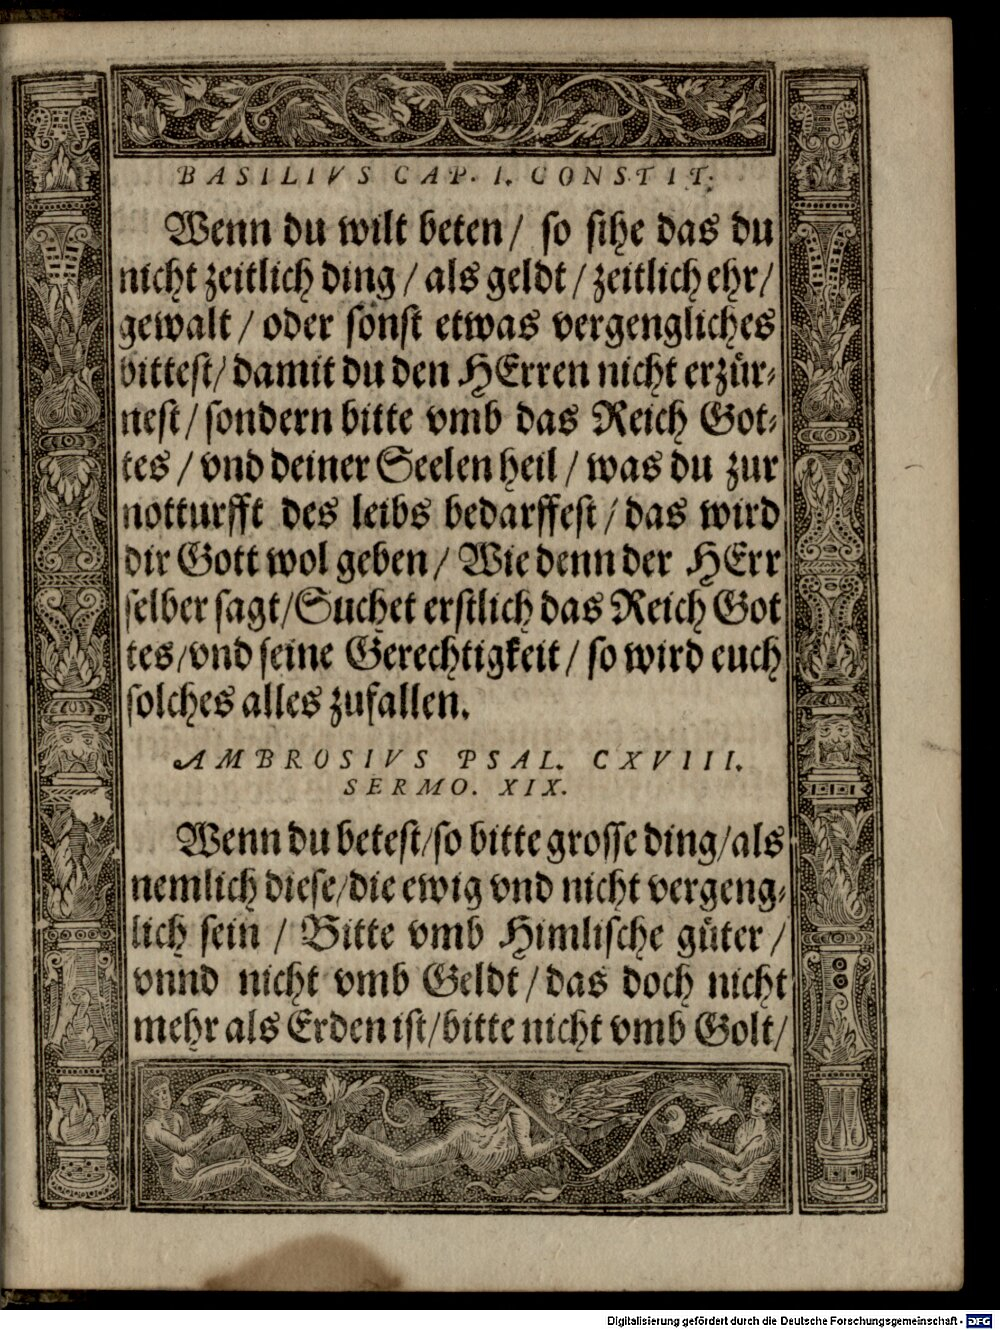 BASILIVS CAP. I. CONSTIT.
Wenn du wilt beten / so sihe das du
nicht zeitlich ding / als geldt / zeitlich ehr /
gewalt / oder sonst etwas vergengliches
bittest / damit du den HErren nicht erzür-
nest / sondern bitte vmb das Reich Got-
tes / vnd deiner Seelen heil / was du zur
notturfft des leibs bedarffest / das wird
dir Gott wol geben / Wie denn der HErr
selber sagt / Suchet erstlich das Reich Got
tes / vnd seine Gerechtigkeit / so wird euch
solches alles zufallen.
AMBROSIVS PSAL. CXVIII.
SERMO. XIX.
Wenn du betest / so bitte grosse ding / als
nemlich diese / die ewig vnd nicht vergeng-
lich sein / Bitte vmb Himlische güter /
vnnd nicht vmb Geldt / das doch nicht
mehr als Erden ist / bitte nicht vmb Golt /
Digitalisierung gefördert durch die Deutsche Forschungsgemeinschaft - DFG